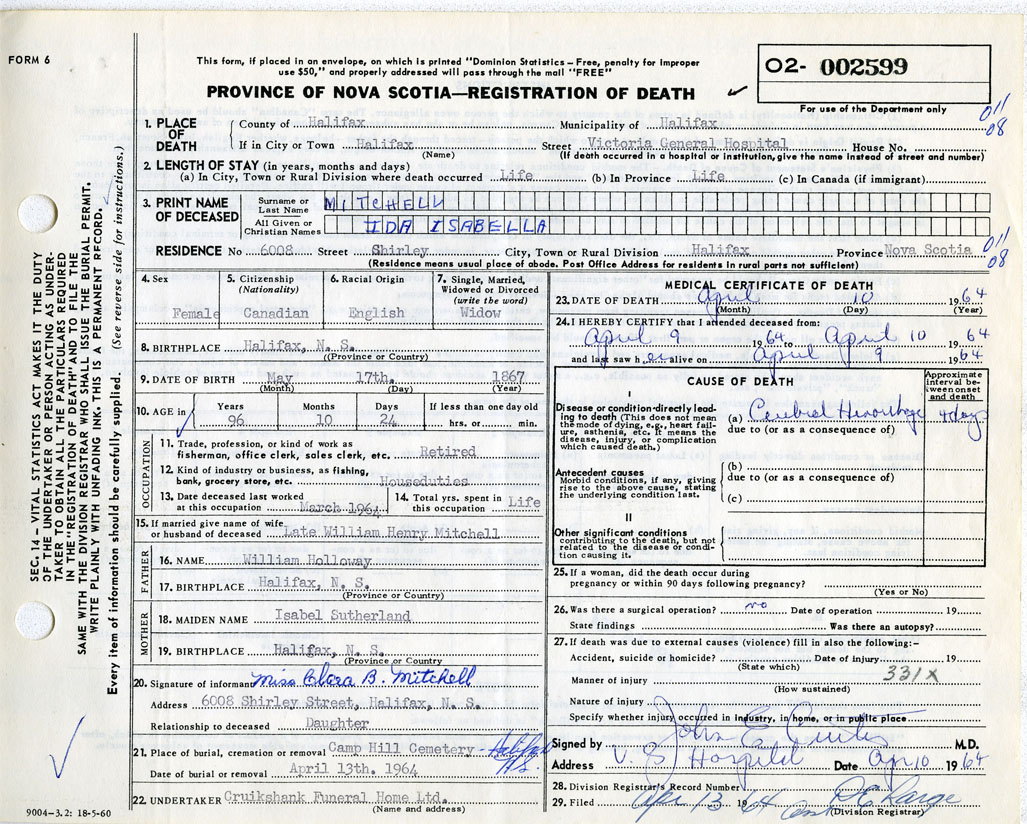 FORM 6
This form, if placed in an envelope, on which is printed "Dominion Statistics – Free, penalty for improper
use $50," and properly addressed will pass through the mail "FREE"
PROVINCE OF NOVA SCOTIA—REGISTRATION OF DEATH
02- 002599
For use of the Department only
011
08
1. PLACE OF DEATH
County of Halifax Municipality of Halifax
If in City or Town Halifax Street Victoria General Hospital House No.
(Name) (If death occurred in a hospital or institution, give the name instead of street and number)
2. LENGTH OF STAY (in years, months and days)
(a) In City, Town or Rural Division where death occurred Life (b) In Province Life (c) In Canada (if immigrant)
3. PRINT NAME OF DECEASED
Surname or Last Name MITCHELL
All Given or Christian Names IDA ISABELLA
RESIDENCE No 6008 Street Shirley City, Town or Rural Division Halifax Province Nova Scotia
011
08
(Residence means usual place of abode. Post Office Address for residents in rural parts not sufficient)
4. Sex Female
5. Citizenship (Nationality) Canadian
6. Racial Origin English
7. Single, Married, Widowed or Divorced (write the word) Widow
8. BIRTHPLACE Halifax, N. S.
(Province or Country)
9. DATE OF BIRTH May 17th. 1867
(Month) (Day) (Year)
10. AGE in Years 96 Months 10 Days 24 If less than one day old hrs. or min.
OCCUPATION
11. Trade, profession, or kind of work as
fisherman, office clerk, sales clerk, etc. Retired
12. Kind of industry or business, as fishing,
bank, grocery store, etc. Houseduties
13. Date deceased last worked at this occupation March 1964
14. Total yrs. spent in this occupation Life
15. If married give name of wife or husband of deceased Late William Henry Mitchell
FATHER
16. NAME William Holloway
17. BIRTHPLACE Halifax, N. S.
(Province or Country)
MOTHER
18. MAIDEN NAME Isabel Sutherland
19. BIRTHPLACE Halifax, N. S.
(Province or Country
20. Signature of informant Miss Clara B. Mitchell
Address 6008 Shirley Street, Halifax, N. S.
Relationship to deceased Daughter
21. Place of burial, cremation or removal Camp Hill Cemetery - Halifax N.S.
Date of burial or removal April 13th. 1964
22. UNDERTAKER Cruikshank Funeral Home Ltd.
(Name and address)
MEDICAL CERTIFICATE OF DEATH
23. DATE OF DEATH April 10 1964
(Month) (Day) (Year)
24. I HEREBY CERTIFY that I attended deceased from:
April 9 1964 to April 10 1964
and last saw her alive on April 9 1964
CAUSE OF DEATH
Approximate interval between onset and death
I
Disease or condition directly leading to death (This does not mean the mode of dying, e.g., heart failure, asthenia, etc. It means the disease, injury, or complication which caused death.)
(a) Cerebral Hemorrhage 4 days
due to (or as a consequence of)
Antecedent causes
Morbid conditions, if any, giving rise to the above cause, stating the underlying condition last.
(b)
due to (or as a consequence of)
(c)
II
Other significant conditions
contributing to the death, but not related to the disease or condition causing it.
25. If a woman, did the death occur during
pregnancy or within 90 days following pregnancy?
(Yes or No)
26. Was there a surgical operation? no Date of operation 19
State findings Was there an autopsy?
27. If death was due to external causes (violence) fill in also the following:–
Accident, suicide or homicide? Date of injury 19
(State which)
Manner of injury 331X
(How sustained)
Nature of injury
Specify whether injury occurred in industry, in home, or in public place
Signed by John E Curtis M.D.
Address V. G Hospital Date Apr 10 1964
28. Division Registrar's Record Number
29. Filed Apr 13 1964
(Division Registrar)
SEC. 14 – VITAL STATISTICS ACT MAKES IT THE DUTY
OF THE UNDERTAKER OR PERSON ACTING AS UNDER-
TAKER TO OBTAIN ALL THE PARTICULARS REQUIRED
IN THE "REGISTRATION OF DEATH" AND TO FILE THE
SAME WITH THE DIVISION REGISTRAR WHO SHALL ISSUE THE BURIAL PERMIT.
WRITE PLAINLY WITH UNFADING INK. THIS IS A PERMANENT RECORD.
Every item of information should be carefully supplied. (See reverse side for instructions.)
9004–3.2: 18-5-60